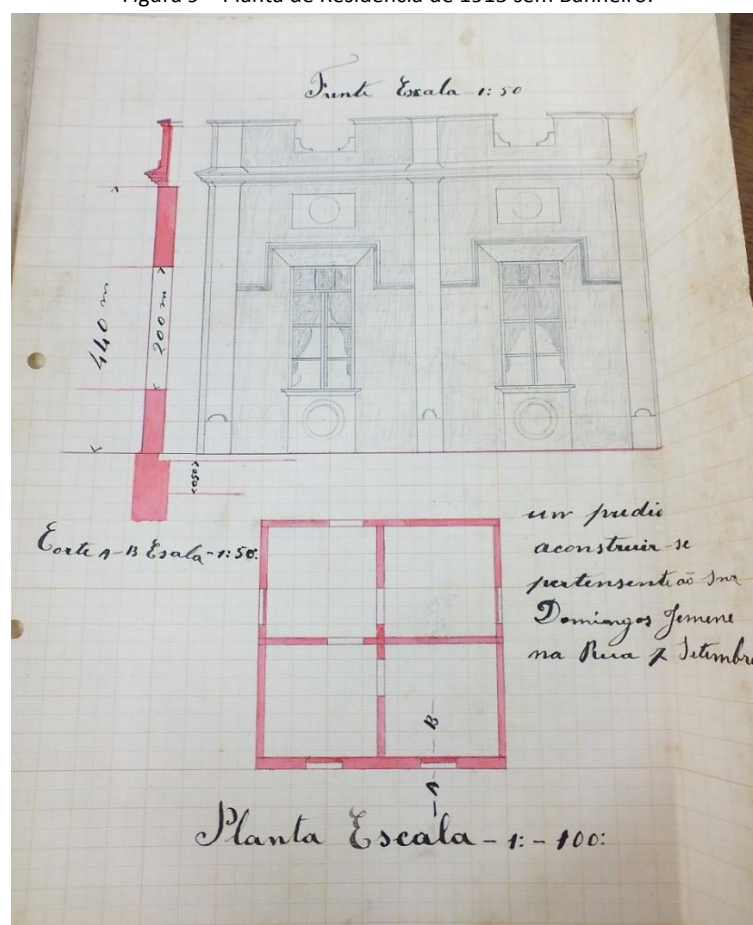 Figura 9 – Planta de Residência de 1913 sem Banheiro.
Frente Escala - 1:50
440 m
200 m
050
Corte A-B Esala - 1:50.
um predio
aconstruir-se
pertensente ão Snr
Domingos Jemene
na Rua 7 Setembro
B
A
Planta Escala - 1: - 100: